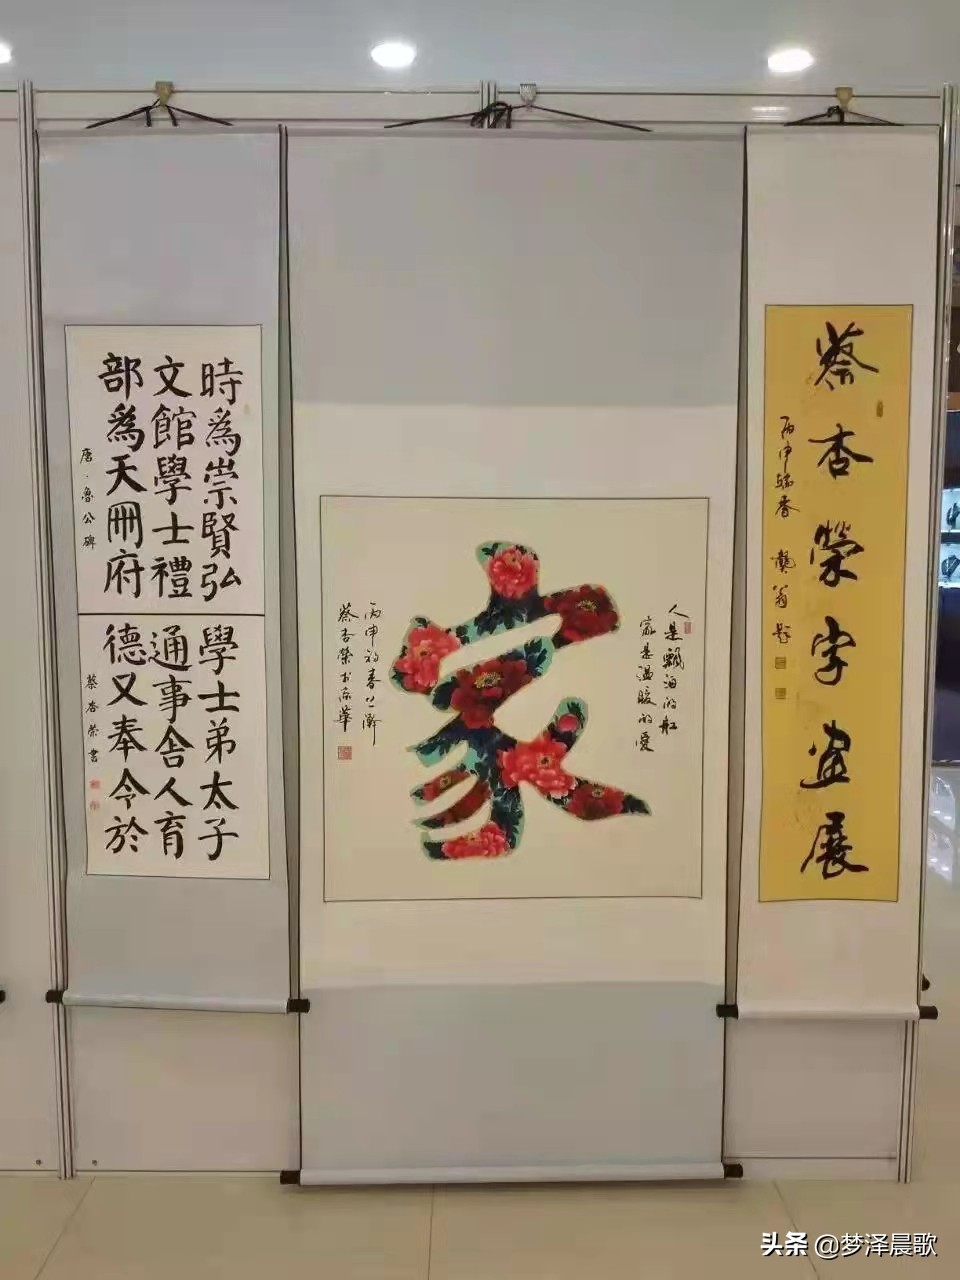 蔡杏榮字畫展
丙申
人是飄泊的船
家是温暖的愛
家
丙申初春
蔡杏榮於京華
時為崇賢弘
文館學士禮
部為天冊府
唐·魯公碑
學士弟太子
通事舍人育
德又奉令於
蔡杏荣書
头条 @梦泽晨歌